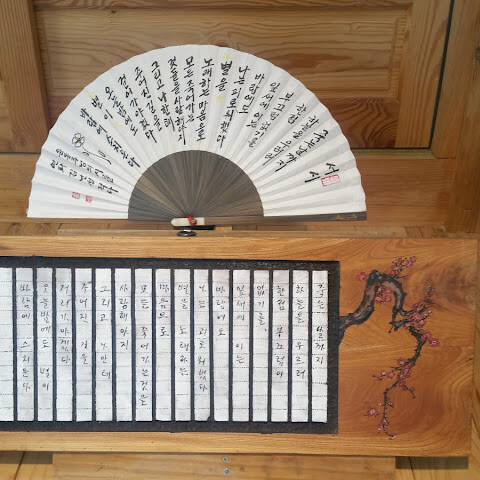 서시
죽는 날까지
하늘을 우러러
한점
부끄럼이 없기를
잎새에 이는
바람에도
나는 괴로워했다
별을
노래하는 마음으로
모든 죽어가는
것들을 사랑해야지
그리고 나한테
주어진 길을
걸어가야겠다
오늘밤에도
별이
바람에 스치운다
죽는 날까지
하늘을 우러러
한점 부끄럼이
없기를
잎새에 이는
바람에도
나는 괴로워했다
별을 노래하는
마음으로
모든 죽어가는것을
사랑해야지
그리고 나한테
주어진 길을
걸어가야겠다
오늘밤에도 별이
바람에 스치운다